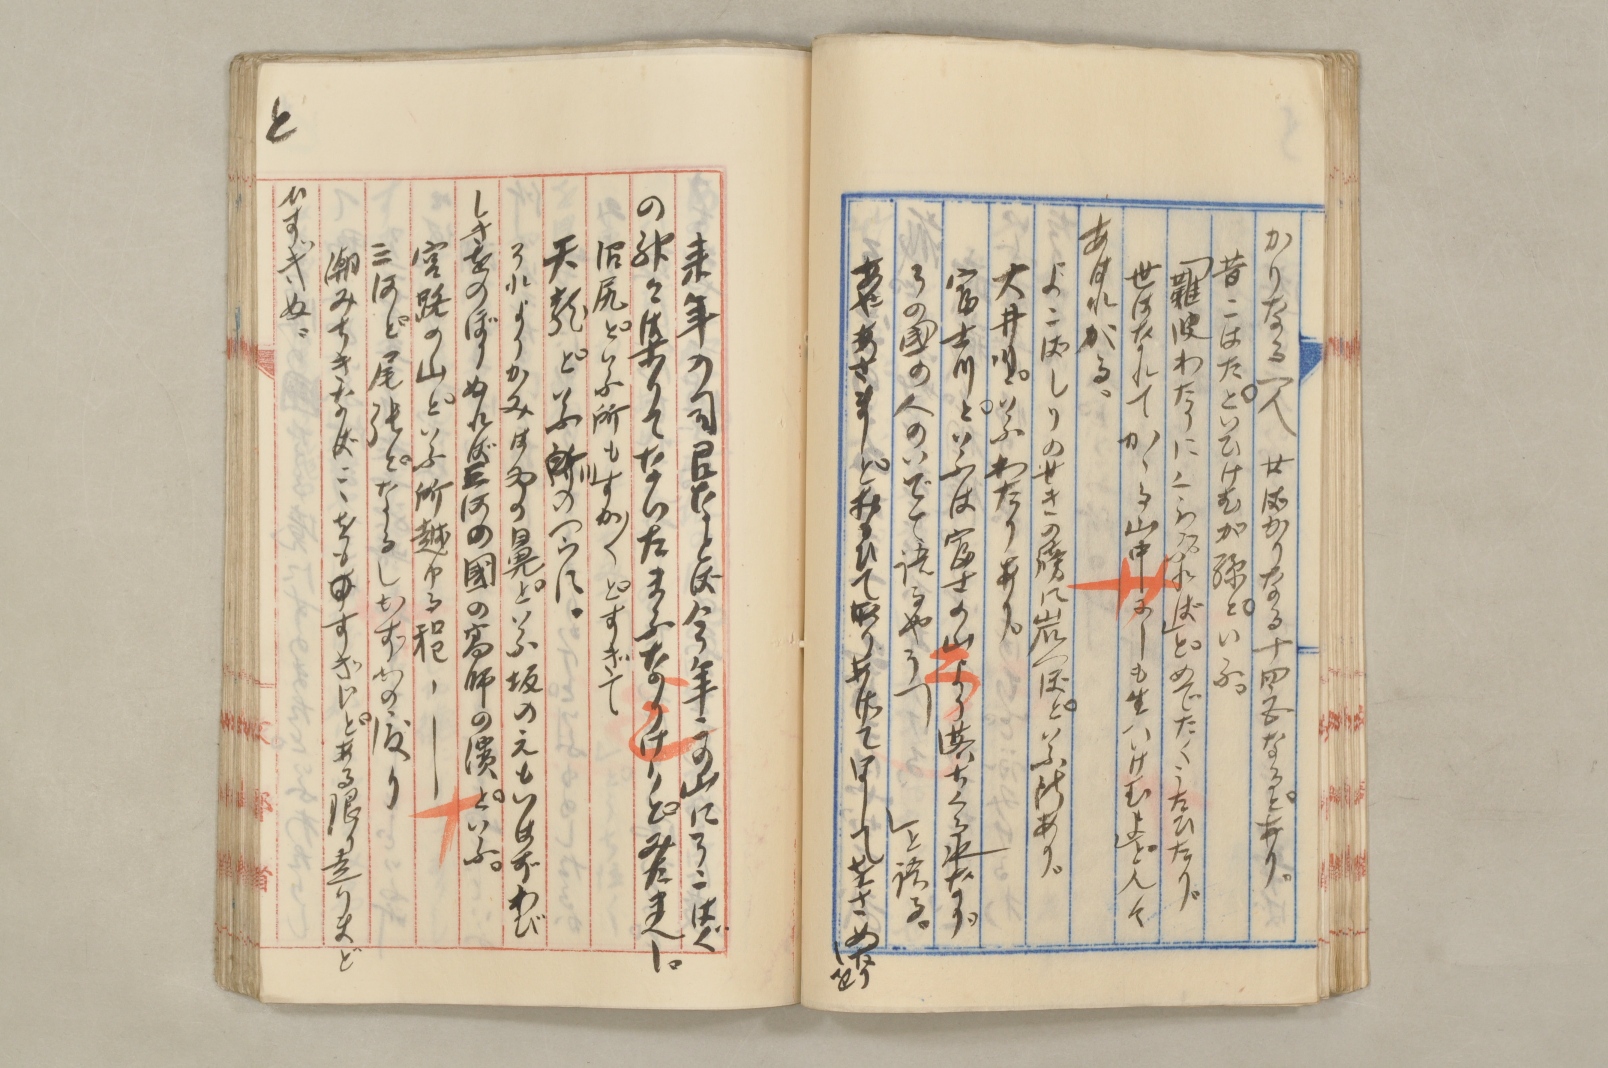 かりなる一人廿ばかりなる十四五なるとあり。
昔こはたといひけむが孫といふ。
「難波わたりにくらぶれば」とめでたくうたひたり。
世はなれてかゝる山中にしも生ひけむよと人々
あはれがる、
よこばしりのせきの傍に岩つぼといふ所あり。
大井川といふわたりあり。
富士川といふは富士の山より落ちくる水なり。
その国の人のいでて語るやう「
」と語る。
あやあさましと思ひて取りあげて
来年の司召などは今年この山にそこばく
の神々集りてない給ふなりけりと見給へし。
沼尻といふ所もすが〳〵とすぎて
天龍といふ川のつらに。
それよりかみは猪の鼻といふ坂のえもいはずわび
しきをのぼりぬれば三河の國の高師の濱といふ。
宮路の山といふ所越ゆる程ーー
三河と尾張となるしかすがの渡り
潮みちきなばこゝをも過ぎじとある限り走りまど
ひすぎぬ。
と